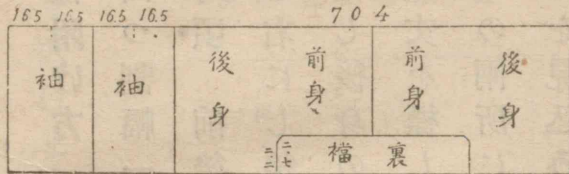 16.5 16.5 16.5 16.5 704
袖 袖 後身 前身 前身 後身
二、七
二、二
裏襠